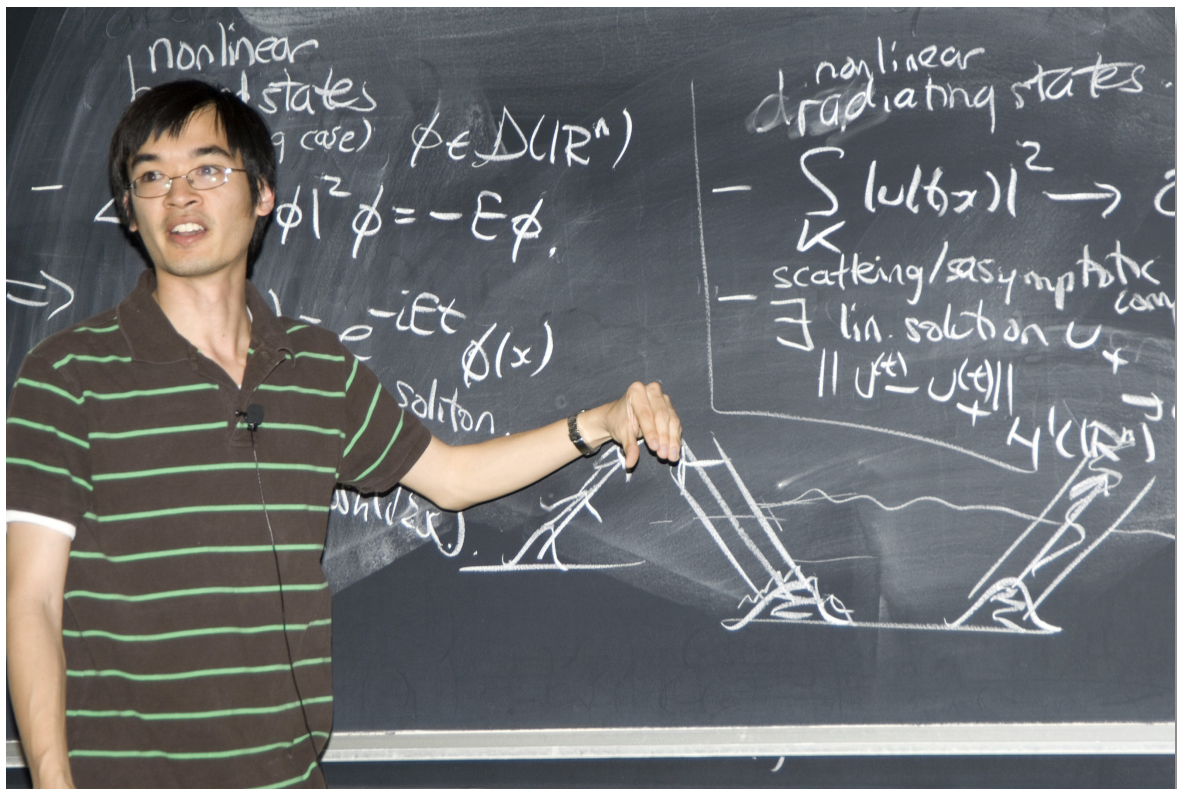 nonlinear
states
case) ϕ ∈ S(ℝⁿ)
- ϕ|² ϕ = -Eϕ.
⇒ = e^{-iEt} ϕ(x)
soliton.
nonlinear
radiating states.
- ∫_K |u(t,x)|² →
scatteing/sasymptotic
- ∃ lin. solution u₊
||u(t) - u₊(t)||
H¹(ℝⁿ) →